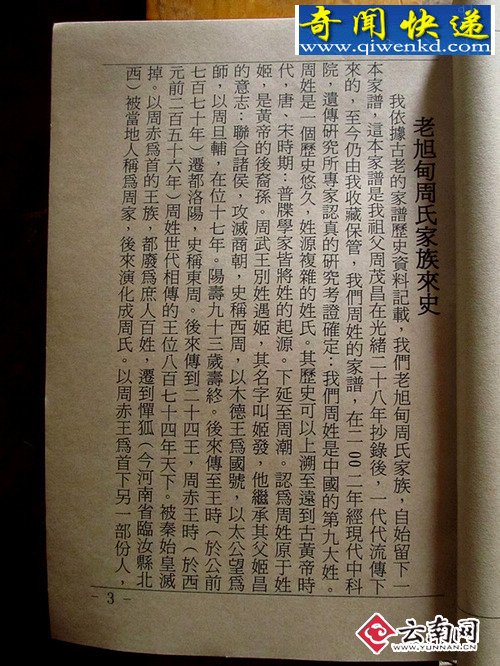 奇聞快递
www.qiwenkd.com
老旭甸周氏家族來史
我依據古老的家譜歷史資料記載，我們老旭甸周氏家族，自始留下一
本家譜，這本家譜是我祖父周茂昌在光緒二十八年抄錄後，一代代流傳下
來的，至今仍由我收藏保管，我們周姓的家譜，在二00二年經現代中科
院，遺傳研究所專家認真的研究考證確定：我們周姓是中國的第九大姓。
周姓是一個歷史悠久，姓源複雜的姓氏。其歷史可以上溯至遠到古黃帝時
代，唐、宋時期：普牒學家皆將姓的起源。下延至周潮。認爲周姓原于姓
姬，是黃帝的後裔孫。周武王別姓遇姬，其名字叫姬發，他繼承其父姬昌
的意志：聯合諸侯，攻滅商朝，史稱西周，以木德王爲國號，以太公望爲
師，以周旦輔，在位十七年。陽壽九十三歲壽終。後來傳至王時（於公前
七百七十年）遷都洛陽，史稱東周。後來傳到二十四王，周赤王時（於西
元前二百五十六年）周姓世代相傳的王位八百七十四年天下。被秦始皇滅
掉。以周赤爲首的王族，都廢爲庶人百姓，遷到憚狐（今河南省臨汝縣北
西）被當地人稱爲周家，後來演化成周氏。以周赤王爲首下另一部份人，
- 3 -
云南网
WWW.YUNNAN.CN